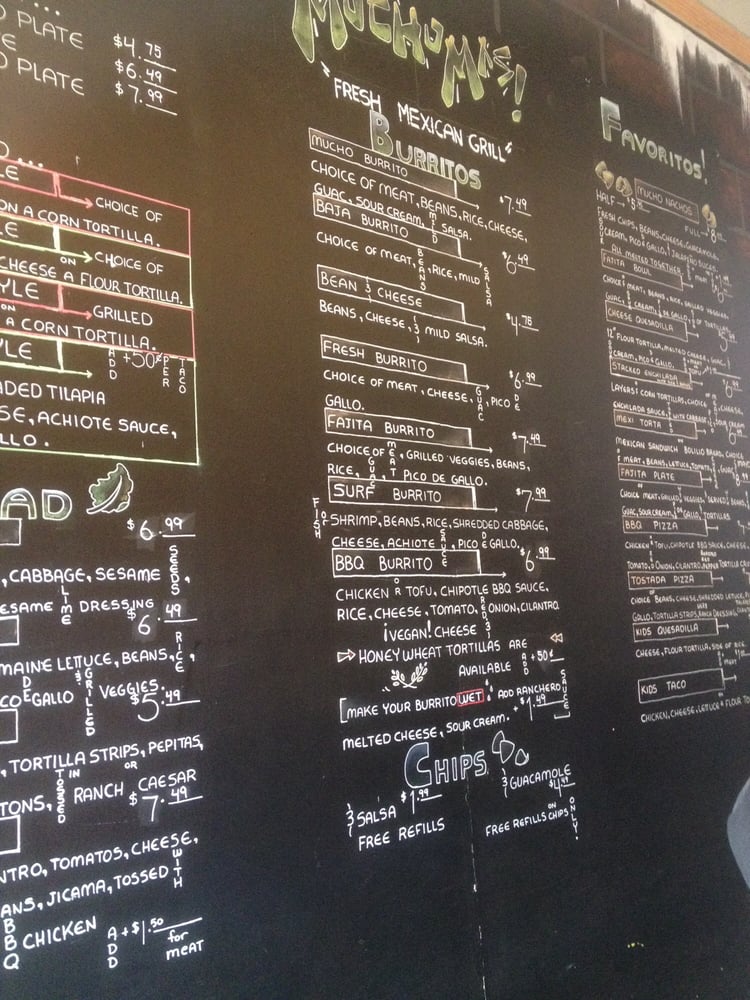 PLATE $4.75
$6.49
PLATE $7.99
CHOICE OF
ON A CORN TORTILLA.
CHOICE OF
CHEESE ON A FLOUR TORTILLA.
GRILLED
ON A CORN TORTILLA.
ADD +50¢ PER TACO
TILAPIA
ACHIOTE SAUCE,
$6.99
, CABBAGE, SESAME SEEDS,
LIME DRESSING
$6.49
LETTUCE, BEANS, RICE,
PICO DE GALLO & GRILLED VEGGIES.
$5.49
, TORTILLA STRIPS, PEPITAS,
TOSSED IN RANCH OR CAESAR
$7.49
TOMATOS, CHEESE,
JICAMA, TOSSED WITH
BBQ CHICKEN ADD +$1.50 for meat
MUCHO MAS!
"FRESH MEXICAN GRILL"
BURRITOS
MUCHO BURRITO $7.49
CHOICE OF MEAT, BEANS, RICE, CHEESE,
GUAC, SOUR CREAM, MILD SALSA.
BAJA BURRITO $6.49
CHOICE OF MEAT, BEANS, RICE, MILD SALSA
BEAN & CHEESE $4.75
BEANS, CHEESE, & MILD SALSA.
FRESH BURRITO $6.99
CHOICE OF MEAT, CHEESE, GUAC, PICO DE
GALLO.
FAJITA BURRITO $7.49
CHOICE OF MEAT, GRILLED VEGGIES, BEANS,
RICE, GUAC, PICO DE GALLO.
SURF BURRITO $7.99
FISH OR SHRIMP, BEANS, RICE, SHREDDED CABBAGE,
CHEESE, ACHIOTE SAUCE, PICO DE GALLO.
BBQ BURRITO $6.99
CHICKEN OR TOFU, CHIPOTLE BBQ SAUCE,
RICE, CHEESE, TOMATO, RED ONION, CILANTRO.
¡VEGAN! CHEESE &
HONEY WHEAT TORTILLAS ARE
AVAILABLE ADD +50¢
MAKE YOUR BURRITO WET: ADD RANCHERO SAUCE
MELTED CHEESE, SOUR CREAM. +$1.49
CHIPS
& SALSA $1.99
FREE REFILLS
& GUACAMOLE $4.49
FREE REFILLS ON CHIPS ONLY!
FAVORITOS!
MUCHO NACHOS
HALF FULL
FRESH CHIPS, BEANS, CHEESE, GUACAMOLE,
CREAM, PICO GALLO,
ALL MELTED TOGETHER.
FAJITA BOWL
MEAT, BEANS, RICE, GRILLED VEGGIES,
CHEESE QUESADILLA
12" FLOUR TORTILLA, MELTED CHEESE, GUAC,
CREAM, PICO GALLO.
STACKED ENCHILADA
LAYERS CORN TORTILLAS, CHOICE
ENCHILADA SAUCE,
MEXI TORTA
MEXICAN SANDWICH BOLILLO BREAD, CHOICE
MEAT, BEANS, LETTUCE, TOMATO,
FAJITA PLATE
CHOICE MEAT, GRILLED VEGGIES, SERVED
GUAC, SOUR CREAM, GALLO, TORTILLAS
BBQ PIZZA
CHICKEN TOFU, CHIPOTLE BBQ SAUCE,
TOMATO, ONION, CILANTRO,
TOSTADA PIZZA
CHOICE BEANS, CHEESE, SHREDDED LETTUCE,
GALLO, TORTILLA STRIPS, RANCH
KIDS QUESADILLA
CHEESE, FLOUR TORTILLA, SIDE OF
KIDS TACO
CHICKEN, CHEESE, LETTUCE & FLOUR